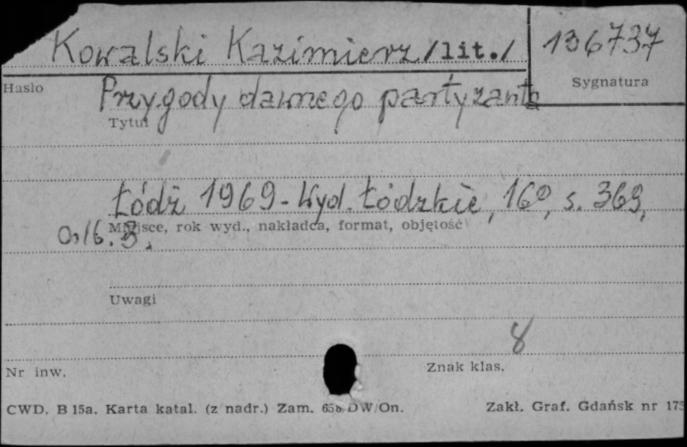 Kowalski Kazimierz /lit./ 136737
Hasło Sygnatura
Przygody dawnego partyzanta
Tytuł
Łódź 1969 - Wyd. Łódzkie, 16º, s. 369,
Miejsce, rok wyd., nakładca, format, objętość
Uwagi
8
Nr inw. Znak klas.
CWD. B 15a. Karta katal. (z nadr.) Zam. 658 DW/On. Zakł. Graf. Gdańsk nr 175